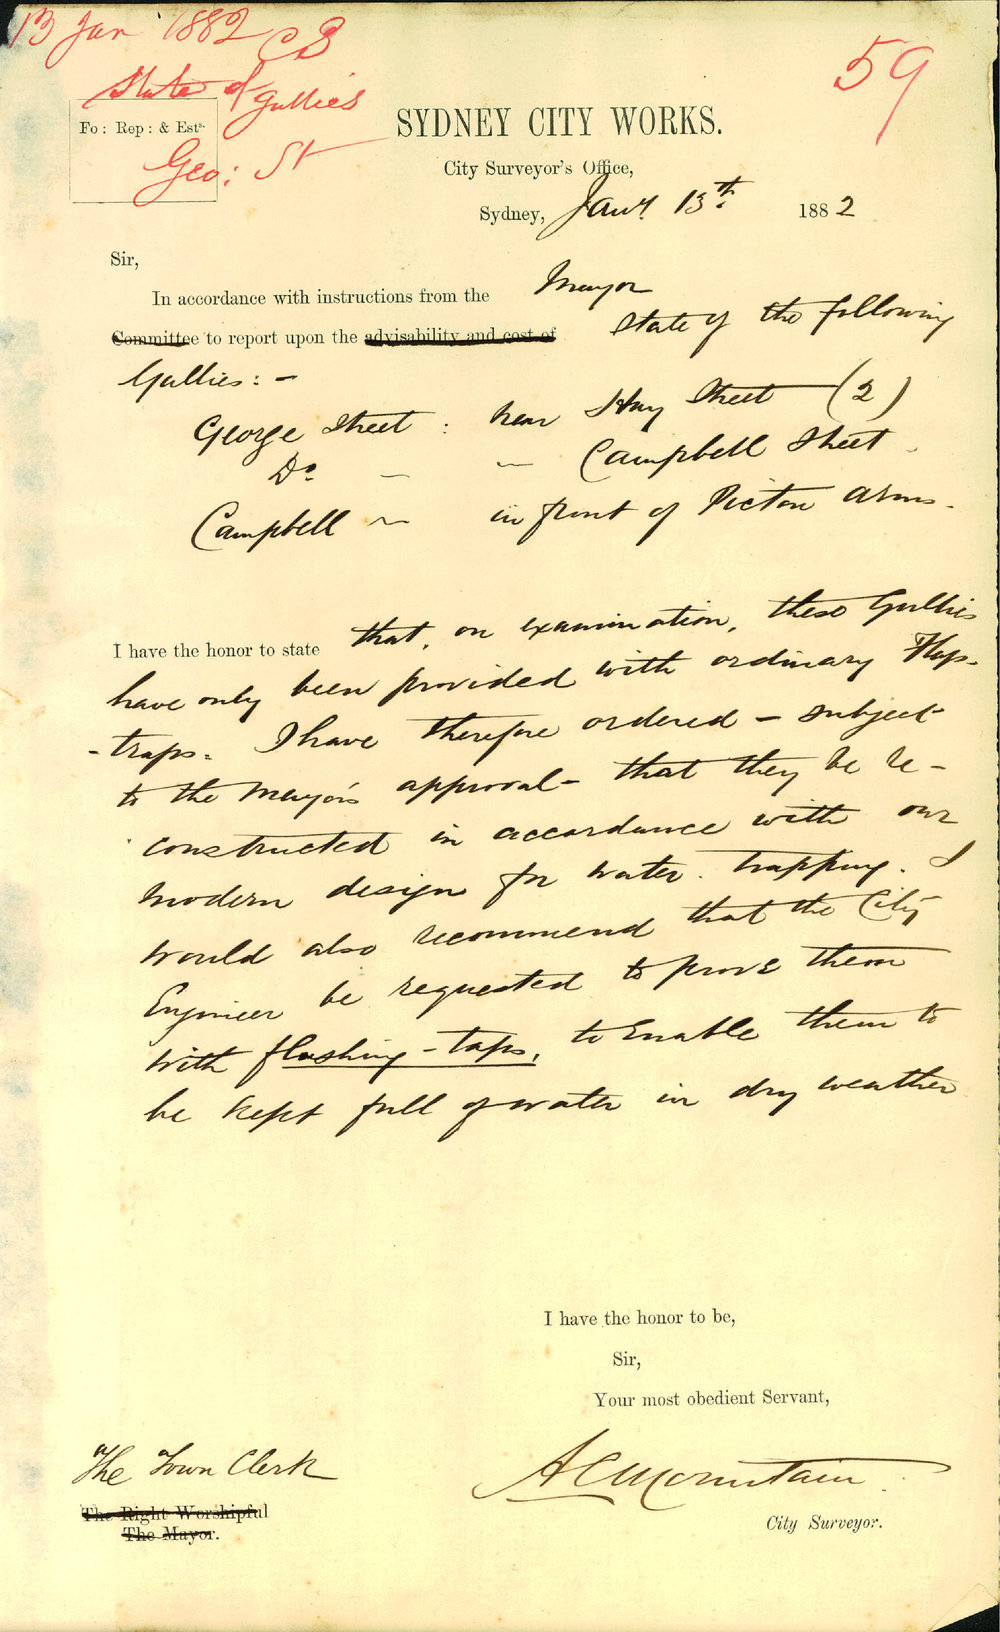 13 Jan 1882 CS
59
State of
Gullies
Fo: Rep: & Ests.
Geo: St
SYDNEY CITY WORKS.
City Surveyor's Office,
Sydney, Jany. 13th. 1882
Sir,
In accordance with instructions from the Mayor
Committee to report upon the advisability and cost of State of the following
Gullies: -
George Street : near Hay Street (2)
Do. - - Campbell Street.
Campbell ~ in front of Picton Arms.
I have the honor to state that, on examination, these Gullies
have only been provided with ordinary Flap-
-traps. I have therefore ordered - subject
to the Mayor's approval - that they be re-
constructed in accordance with our
modern design for water-trapping. I
would also recommend that the City
Engineer be requested to prove them
with flushing-taps, to enable them to
be kept full of water in dry weather
I have the honor to be,
Sir,
Your most obedient Servant,
The Town Clerk
A C Mountain
The Right Worshipful
The Mayor.
City Surveyor.